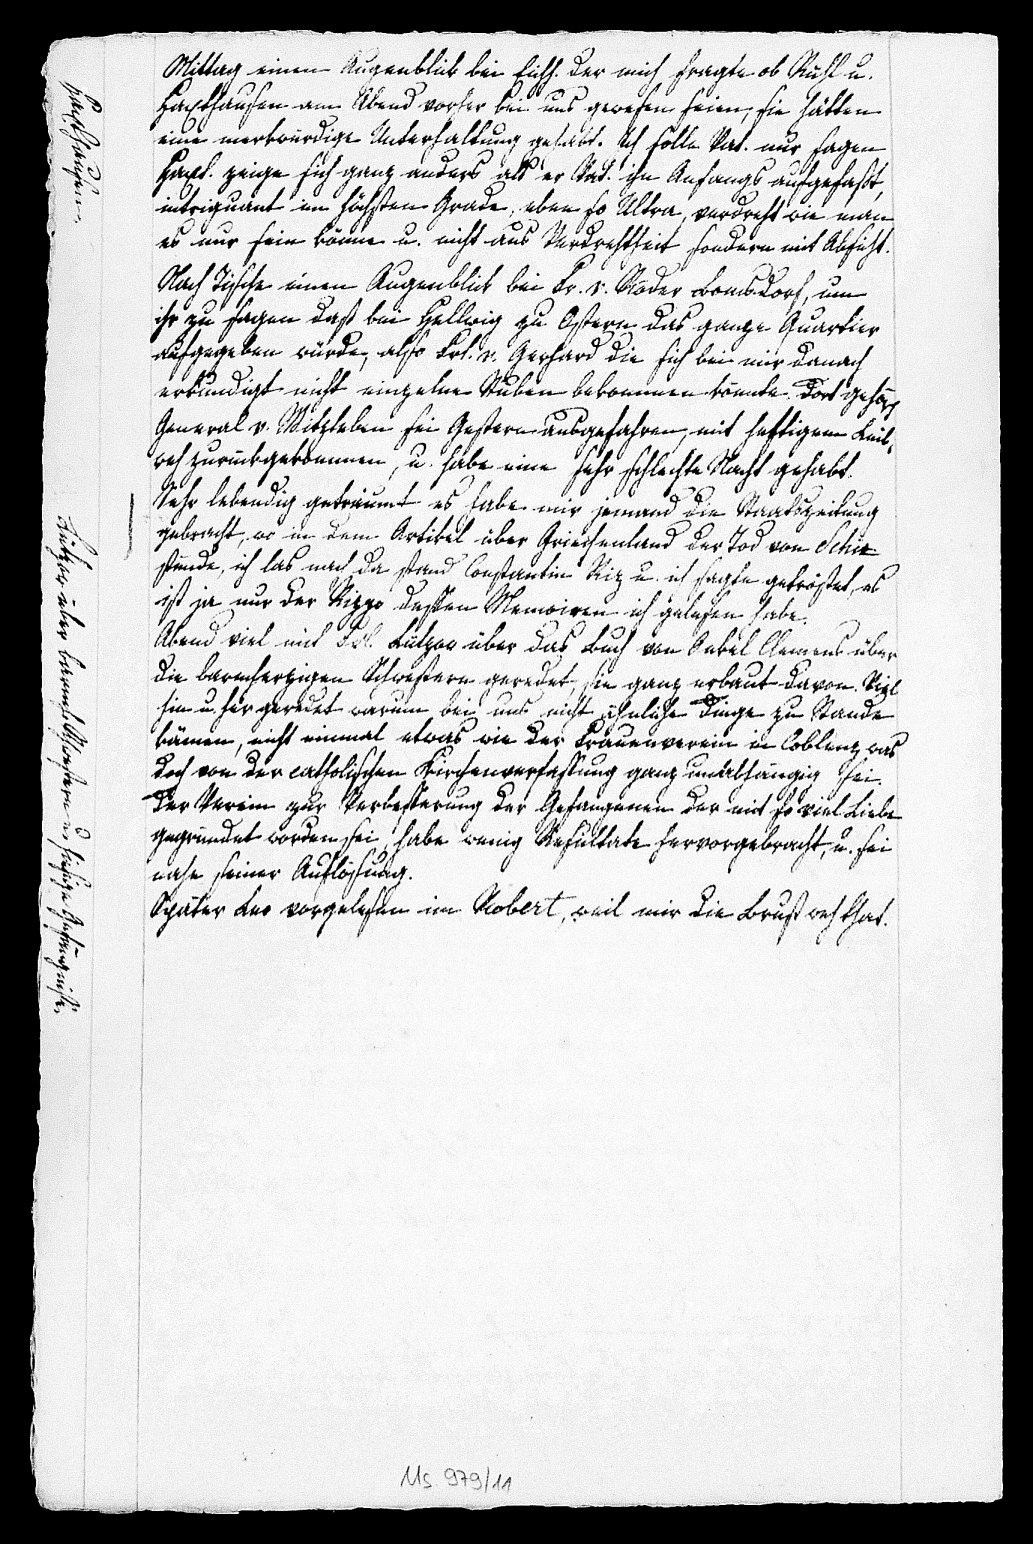 Mittag einen Augenblick bei Eichh. der mich fragte ob Rühl u.
Haxthausen am Abend vorher bei uns gewesen seien, sie hätten
eine merkwürdige Unterhaltung gehabt. Ich solle Vat. nur sagen
Haxt. zeige sich ganz anders als er Vat. ihn Anfangs aufgefaßt,
intriguant im höchsten Grade, eben so Ultra, verdreht wie man
es nur sein könne u. nicht aus Verdrehtheit sondern mit Absicht.
Nach Tische einen Augenblick bei Fr. v. Röder Bomsdorf, um
ihr zu sagen daß bei Hellwig zu Ostern das ganze Quartier
aufgegeben würde, also Frl. v. Gerhard die sich bei mir danach
erkundigt nicht einzelne Stuben bekommen könnte. Dort gehört
General v. Witzleben sei Gestern ausgefahren, mit heftigem Leib-
weh zurückgekommen, u. habe eine sehr schlechte Nacht gehabt.
Sehr lebendig geträumt es habe mir jemand die Staatszeitung
gebracht, wo in dem Artikel über Griechenland der Tod von Schi
stünde, ich las nach da stand Constantin Riz u. ich sagte getröstet, es
ist ja nur der Rizzo dessen Memoiren ich gelesen habe.
Abend viel mit Frl. Lützow über das Buch von Onkel Clemens über
die barmherzigen Schwestern geredet, sie ganz erbaut davon. Viel
hin u. her geredet warum bei uns nicht ähnliche Dinge zu Stande
kämen, nicht einmal etwas wie der Frauenverein in Coblenz was
doch von der catholischen Kirchenverfassung ganz unabhängig sei.
Der Verein zur Verbesserung der Gefangenen der mit so viel Liebe
gegründet worden sei, habe wenig Resultate hervorgebracht, u. sei
nahe seiner Auflösung.
Später Leo vorgelesen im Robert, weil mir die Brust weh that.
Haxthausen.
Lützow über barmh. Schwestern u. hiesige Gefängnisse.
Ms 979/11